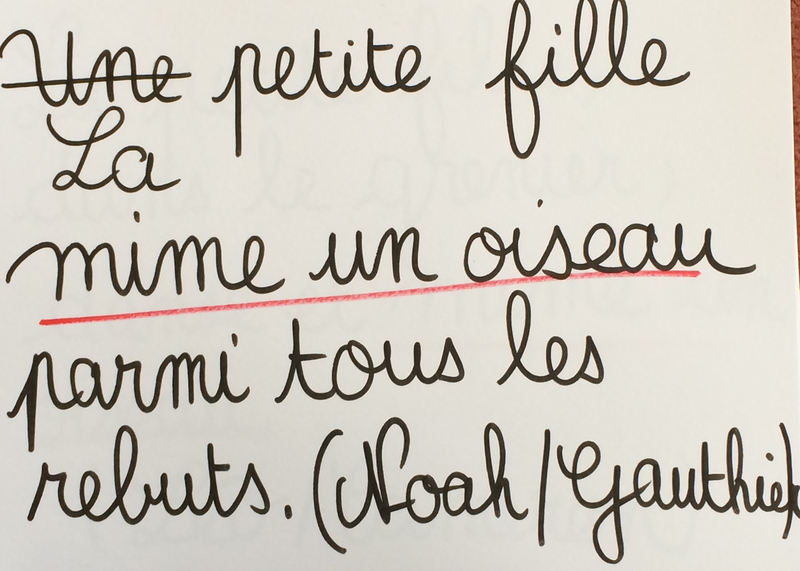 Une petite fille
La
mime un oiseau
parmi tous les
rebuts. (Noah/Gauthier)